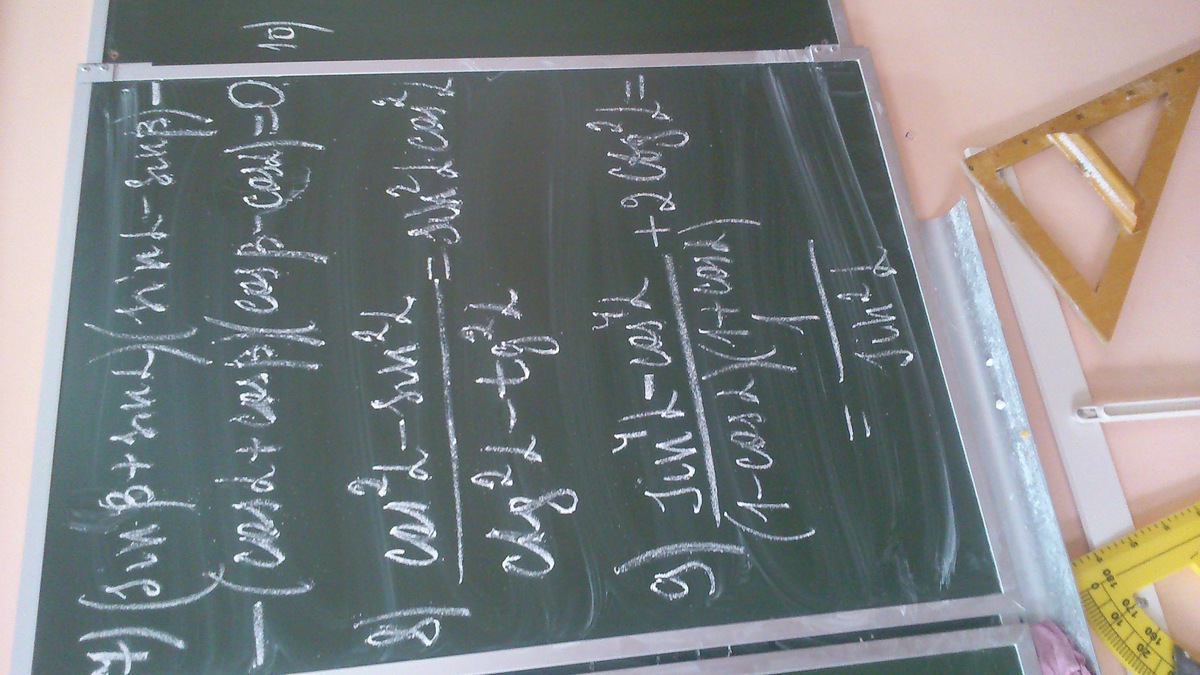 7) (sin β + sin α)(sin α - sin β) -
- (cos α + cos β)(cos β - cos α) = 0
8) cos²α - sin²α / ctg²α - tg²α = sin²α · cos²α
9) sin⁴α - cos⁴α / (1 - cos α)(1 + cos α) + 2 ctg²α =
= 1 / sin²α
10)